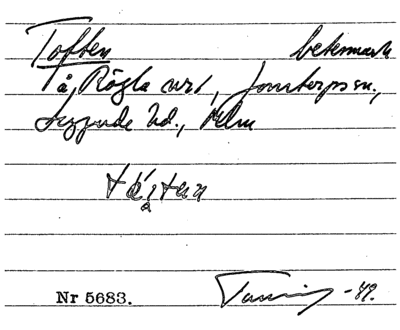 Toften betesmark
På Rögla nr 1, Jonstorps sn.,
Luggude hd., Mlm
tåftan
Nr 5683. -49.